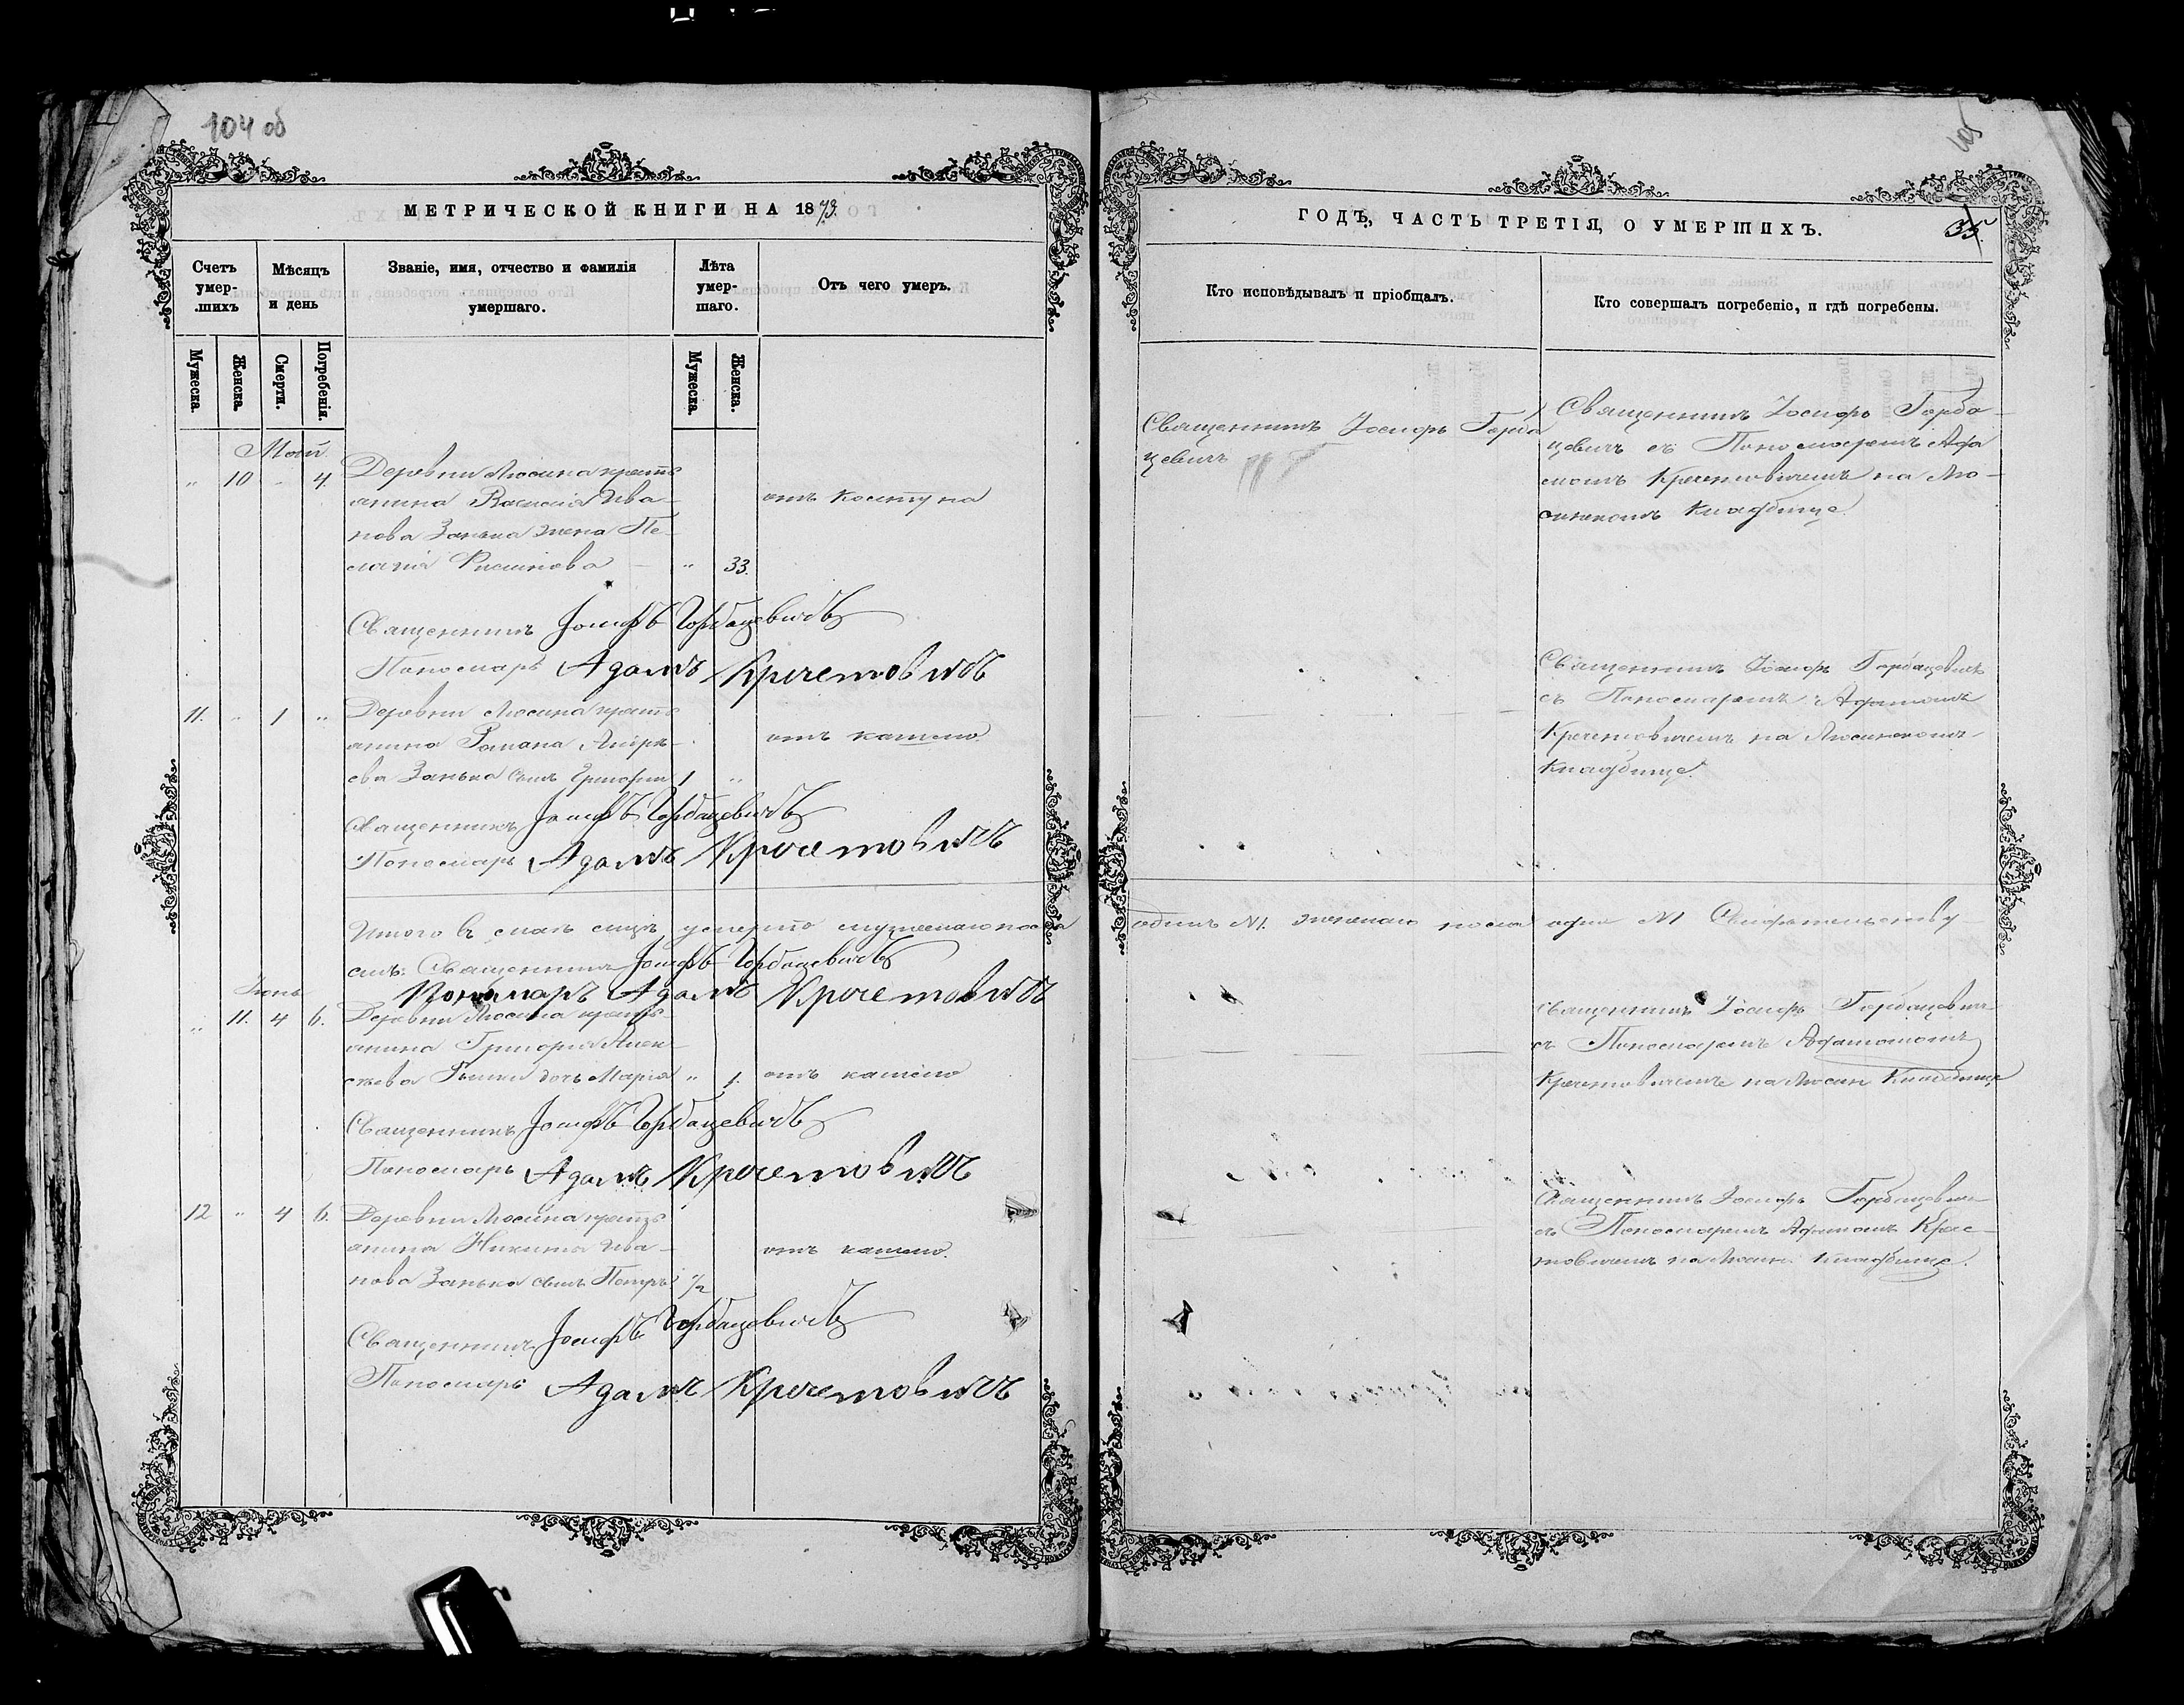 104 об
МЕТРИЧЕСКОЙ КНИГИ НА 1873
Счетъ умер-шихъ
Мѣсяцъ и день
Званіе, имя, отчество и фамилія умершаго.
Лѣта умер-шаго.
Отъ чего умеръ.
Мужеска.
Женска.
Смерти.
Погребенія.
Мужеска.
Женска.
Май
" 10 - 4. Деревни Люсина кресть
янина Василія Ива-
нова Занька жена Пе-
лагія - " 33.
отъ колтуна
Священникъ Іосифъ Горбацевичъ
Пономарь Адамъ Кречетовичъ
11. " 1 " Деревни Люсина кресть
янина Романа Андре-
ева Занька сынъ Григорій 1 "
отъ кашлю
Священникъ Іосифъ Горбацевичъ
Пономарь Адамъ Кречетовичъ
Итого в маѣ мцѣ умерло мужескаго пола
Священникъ Іосифъ Горбацевичъ
Пономарь Адамъ Кречетовичъ
Іюнь
" 11. 4 6. Деревни Люсина кресть
янина Григорія Алек-
сѣева дочь Марія " 1. отъ кашлю
Священникъ Іосифъ Горбацевичъ
Пономарь Адамъ Кречетовичъ
12 " 4 6. Деревни Люсина кресть
янина Никиты Ива-
нова Занька сынъ Петръ 1/2
отъ кашлю.
Священникъ Іосифъ Горбацевичъ
Пономарь Адамъ Кречетовичъ
105
ГОДЪ, ЧАСТЬ ТРЕТІЯ, О УМЕРШИХЪ.
35
Кто исповѣдывалъ и пріобщалъ.
Кто совершалъ погребеніе, и гдѣ погребены.
Священникъ Іосифъ Горба
цевичъ
Священникъ Іосифъ Горба-
цевичъ съ Пономаремъ Ада
момъ Кречетовичемъ на Лю-
синскомъ кладбище
Священникъ Іосифъ Горбацевичъ
съ Пономаремъ Адамомъ
Кречетовичемъ на Люсинскомъ
кладбище.
одинъ №1. женскаго пола одна №1
Священникъ Іосифъ Горбацевичъ
съ Пономаремъ Адамомъ
Кречетовичемъ на Люсин кладбище
Священникъ Іосифъ Горбацевичъ
съ Пономаремъ Адамомъ Крече-
товичемъ на Люсин. кладбище.